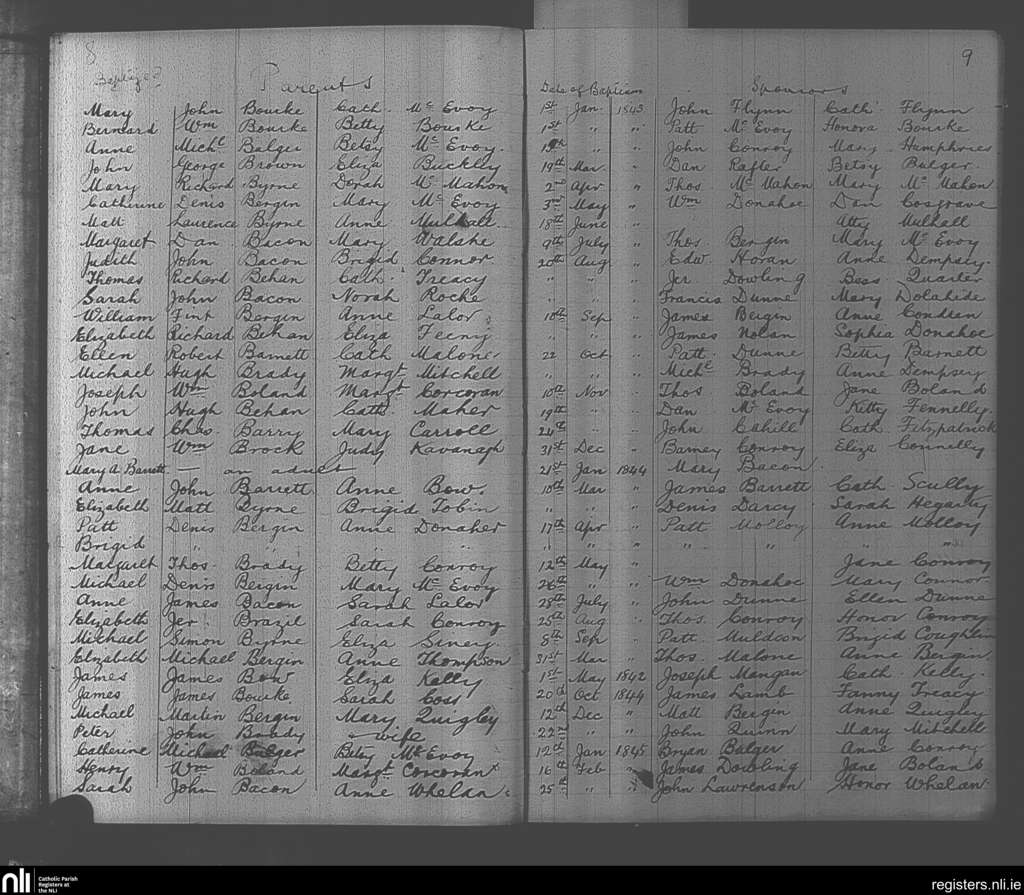 8 9
Baptized Parents Date of Baptism Sponsors
Mary John Bourke Cath. Mc Evoy 1st Jan. 1843 John Flynn Cath Flynn
Bernard Wm Bourke Betty Bourke 1st " " Patt Mc Evoy Honora Bourke
Anne Michl Balger Betsy Mc Evoy. " " John Conroy Mary Humphries
John George Brown Eliza Buckley 19th Mar. " Dan Rafter Betsy Balger.
Mary Richard Byrne Dorah Mc Mahon 2nd Apr " Thos. Mc Mahon Mary Mc Mahon
Catherine Denis Bergin Mary Mc Evoy 3rd May " Wm Donahoe Dan Cosgrave
Matt Laurence Byrne Anne Mulhall. 18th June " Atty Mulhall
Margaret Dan Bacon Mary Walshe 9th July " Thos. Bergin Mary Mc Evoy
Judith John Bacon Brigid Connor 20th Aug " Edw Horan Anne Dempsey.
Thomas Richard Behan Cath. Treacy " " " Jer Dowling Bess Quarter
Sarah John Bacon Norah Roche " " " Francis Dunne Mary Dolahide
William Fint Bergin Anne Lalor 10th Sep " James Bergin Anne Condren
Elizabeth Richard Behan Eliza Feeny " " " James Nolan Sophia Donahoe
Ellen Robert Barnett Cath Malone 22 Oct " Patt. Dunne Betty Barnett
Michael Hugh Brady Margt Mitchell " " " Michl Brady Anne Dempsey
Joseph Wm Boland Margt Corcoran 10th Nov " Thos Boland Jane Boland
John Hugh Behan Cath. Maher 19th " " Dan Mc Evoy Kitty Fennelly.
Thomas Chas. Barry Mary Carroll 24th " " John Cahill Cath. Fitzpatrick
Jane Wm Brock Judy Kavanagh 31st Dec " Barney Conroy Eliza Connelly
Mary A Barrett — an adult 21st Jan 1844 Mary Bacon.
Anne John Barrett Anne Bow. 10th Mar " James Barrett Cath. Scully
Elizabeth Matt Byrne Brigid Tobin " " " Denis Darcy Sarah Hegarty
Patt Denis Bergin Anne Donaher 17th Apr " Patt Molloy Anne Molloy
Brigid " " " " " " " " " "
Margaret Thos. Brady Betty Conroy 12th May " Jane Conroy
Michael Denis Bergin Mary Mc Evoy 26th " " Wm Donahoe Mary Connor
Anne James Bacon Sarah Lalor 28th July " John Dunne Ellen Dunne
Elizabeth Jer. Brazil Sarah Conroy 25th Aug " Thos. Conroy Honor Conroy
Michael Simon Byrne Eliza Sinery 8th Sep " Patt Muldoon Brigid Coughlin
Elizabeth Michael Bergin Anne Thompson 31st Mar " Thos. Malone Anne Bergin.
James James Bow Eliza Kelly 1st May 1842 Joseph Mangan Cath. Kelly.
James James Bourke Sarah Coss 20th Oct 1844 James Lamb Fanny Treacy
Michael Martin Bergin Mary Quigley 12th Dec " Matt Bergin Anne Quigley
Peter John Brady — wife 22nd " " John Quinn Mary Mitchell
Catherine Michael Balger Betsy Mc Evoy 12th Jan 1845 Bryan Balger Anne Conroy
Henry Wm Boland Margt Corcoran x 16th Feb " James Dowling Jane Boland
Sarah John Bacon Anne Whelan 25th " " John Lawrenson Honor Whelan
nli Catholic Parish Registers at the NLI registers.nli.ie